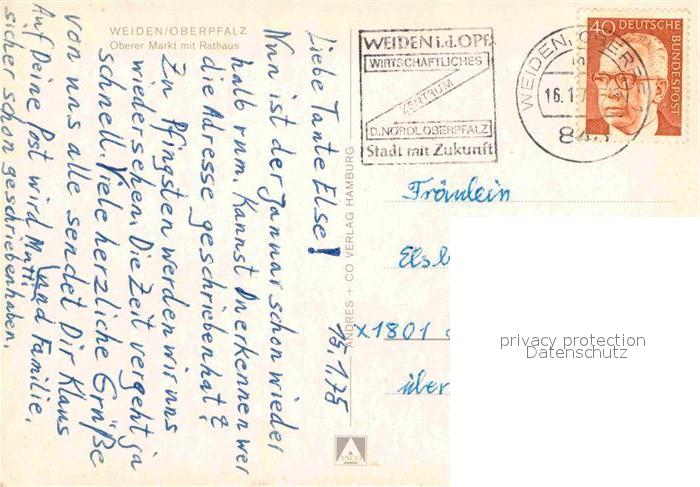 WEIDEN/OBERPFALZ
Oberer Markt mit Rathaus
15.1.75
Liebe Tante Else!
Nun ist der Januar schon wieder
halb rum. Kannst Du erkennen wer
die Adresse geschrieben hat?
Zu Pfingsten werden wir uns
wiedersehen. Die Zeit vergeht ja
schnell. Viele herzliche Grüße
von uns alle sendet Dir Klaus
und Familie.
Auf Deine Post wird Mutti
sicher schon geschrieben haben.
ANDRES + CO VERLAG HAMBURG
ANCO
WEIDEN i.d.OPf.
WIRTSCHAFTLICHES
ZENTRUM
D.NÖRDL.OBERPFALZ
Stadt mit Zukunft
WEIDEN, OBERPF
16.1.7
848
40 DEUTSCHE
BUNDESPOST
Fräulein
Elsb
X1801
über
privacy protection
Datenschutz